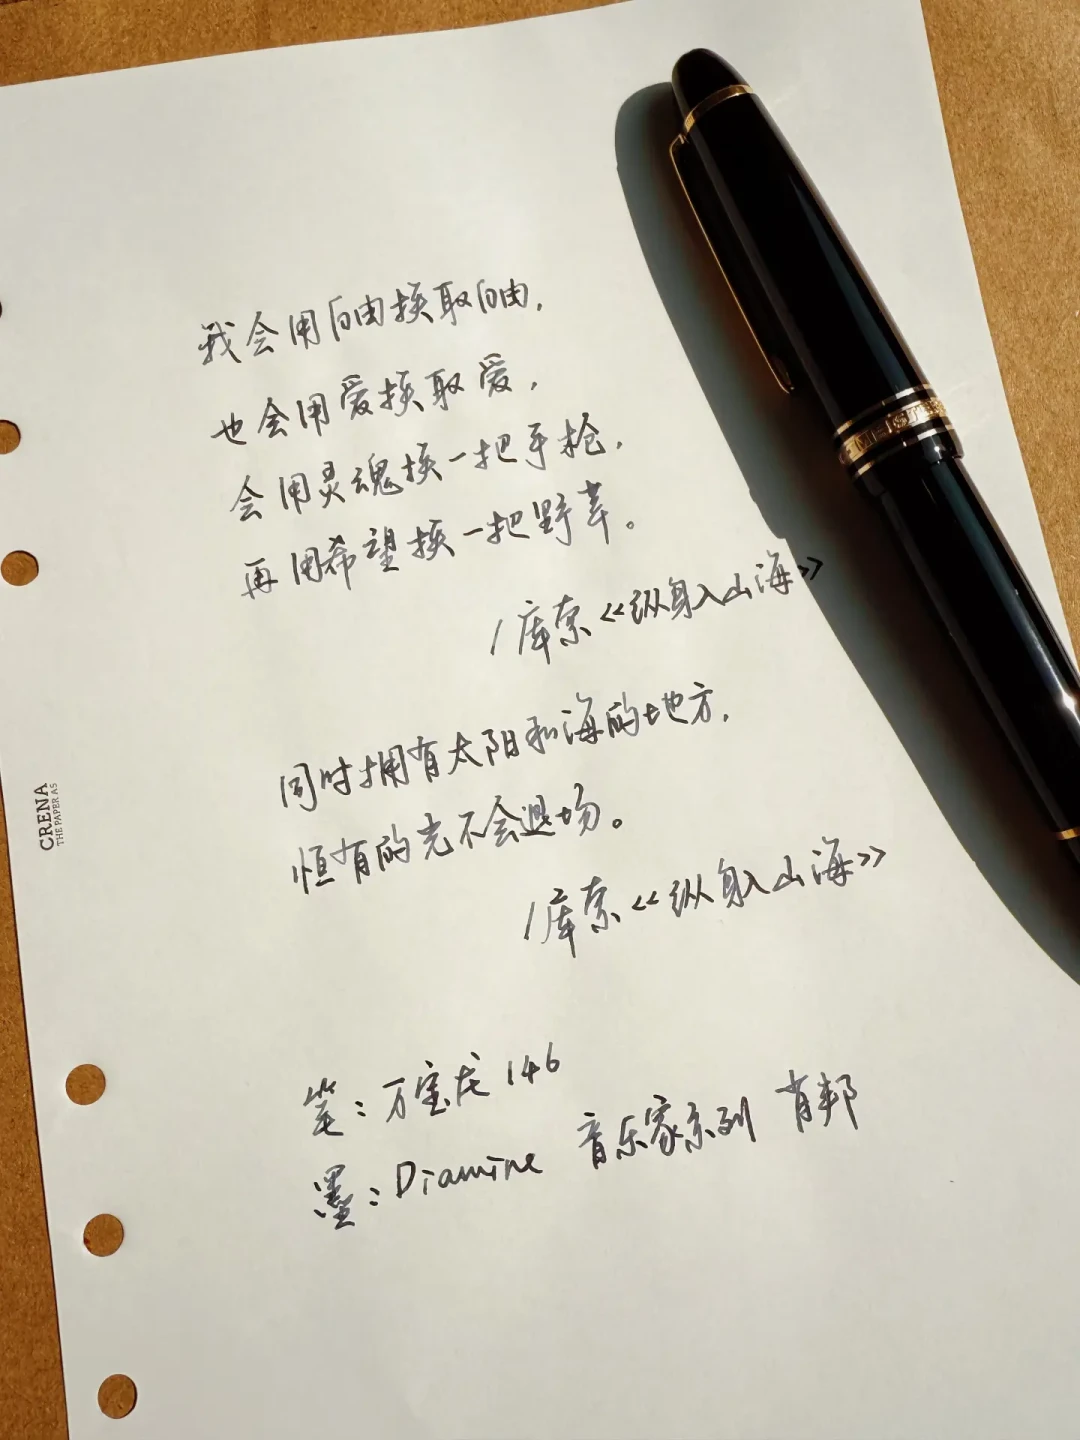 我会用自由换取自由,
也会用爱换取爱,
会用灵魂换一把手枪,
再用希望换一把野草。
/库索《纵身入山海》
同时拥有太阳和海的地方,
恒有的光不会退场。
/库索《纵身入山海》
笔:万宝龙146
墨:Diamine 音乐家系列 肖邦
CRENA
THE PAPER A5